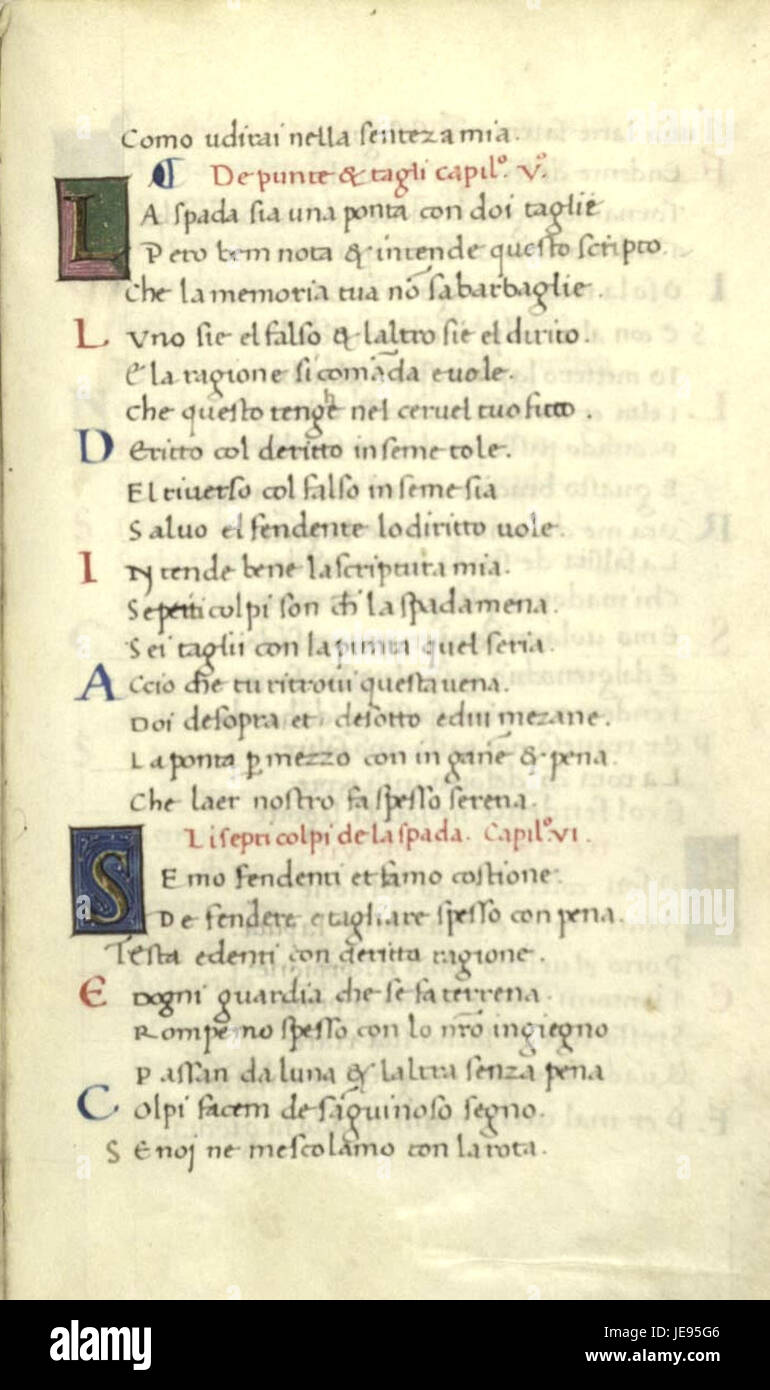 Como uditai nella senteza mia.
De punte & tagli capil.º v.º
LA spada sia una ponta con doi taglie
Pero bem nota & intende questo scripto.
Che la memoria tua nō sabarbaglie.
Luno sie el falso & laltro sie el dirito.
E la ragione si comāda e uole.
che questo tenghe nel ceruel tuo fitto.
Deritto col deritto inseme tole.
El riuerso col falso inseme sia
Saluo el fendente lo diritto uole.
INtende bene la scriptura mia.
Sepetti colpi son chi la spada mena.
Sei taglii con la punta quel seria.
Accio che tu ritroui questa uena.
Doi de sopra et de sotto e dui mezane.
La ponta p mezzo con ingane & pena.
Che laer nostro fa spesso serena.
Li septi colpi de la spada. Capil.º VI.
SEmo fendenti et famo costione.
De fendere e tagliare spesso con pena.
Testa e denti con deritta ragione.
E Dogni guardia che se fa terrena.
Rompemo spesso con lo nrō ingiegno
Passan da luna & laltra senza pena
Colpi facem de sāguinoso segno.
Se noj ne mescolamo con la rota.
alamy
alamy
alamy
alamy
alamy
Image ID: JE95G6
www.alamy.com